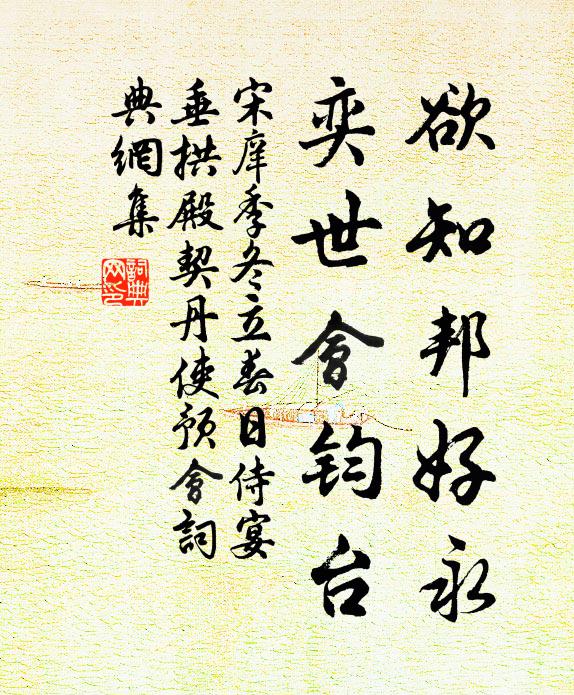 欲知邦好永
奕世會鈞台
宋庠季冬立春日侍宴
垂拱殿契丹使預會詞
典網集
詞典网印